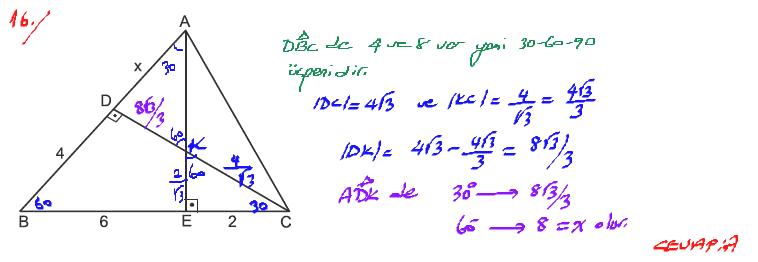 16./
A
x
30
D
8√3/3
60
K
4
2/√3
60
4/√3
60
30
B
6
E
2
C
DBC de 4 ve 8 var yani 30-60-90
üçgenidir.
|DC| = 4√3 ve |KC| = 4/√3 = 4√3/3
|DK| = 4√3 - 4√3/3 = 8√3/3
ADK de 30° → 8√3/3
60 → 8 = x olur.
CEVAP: A